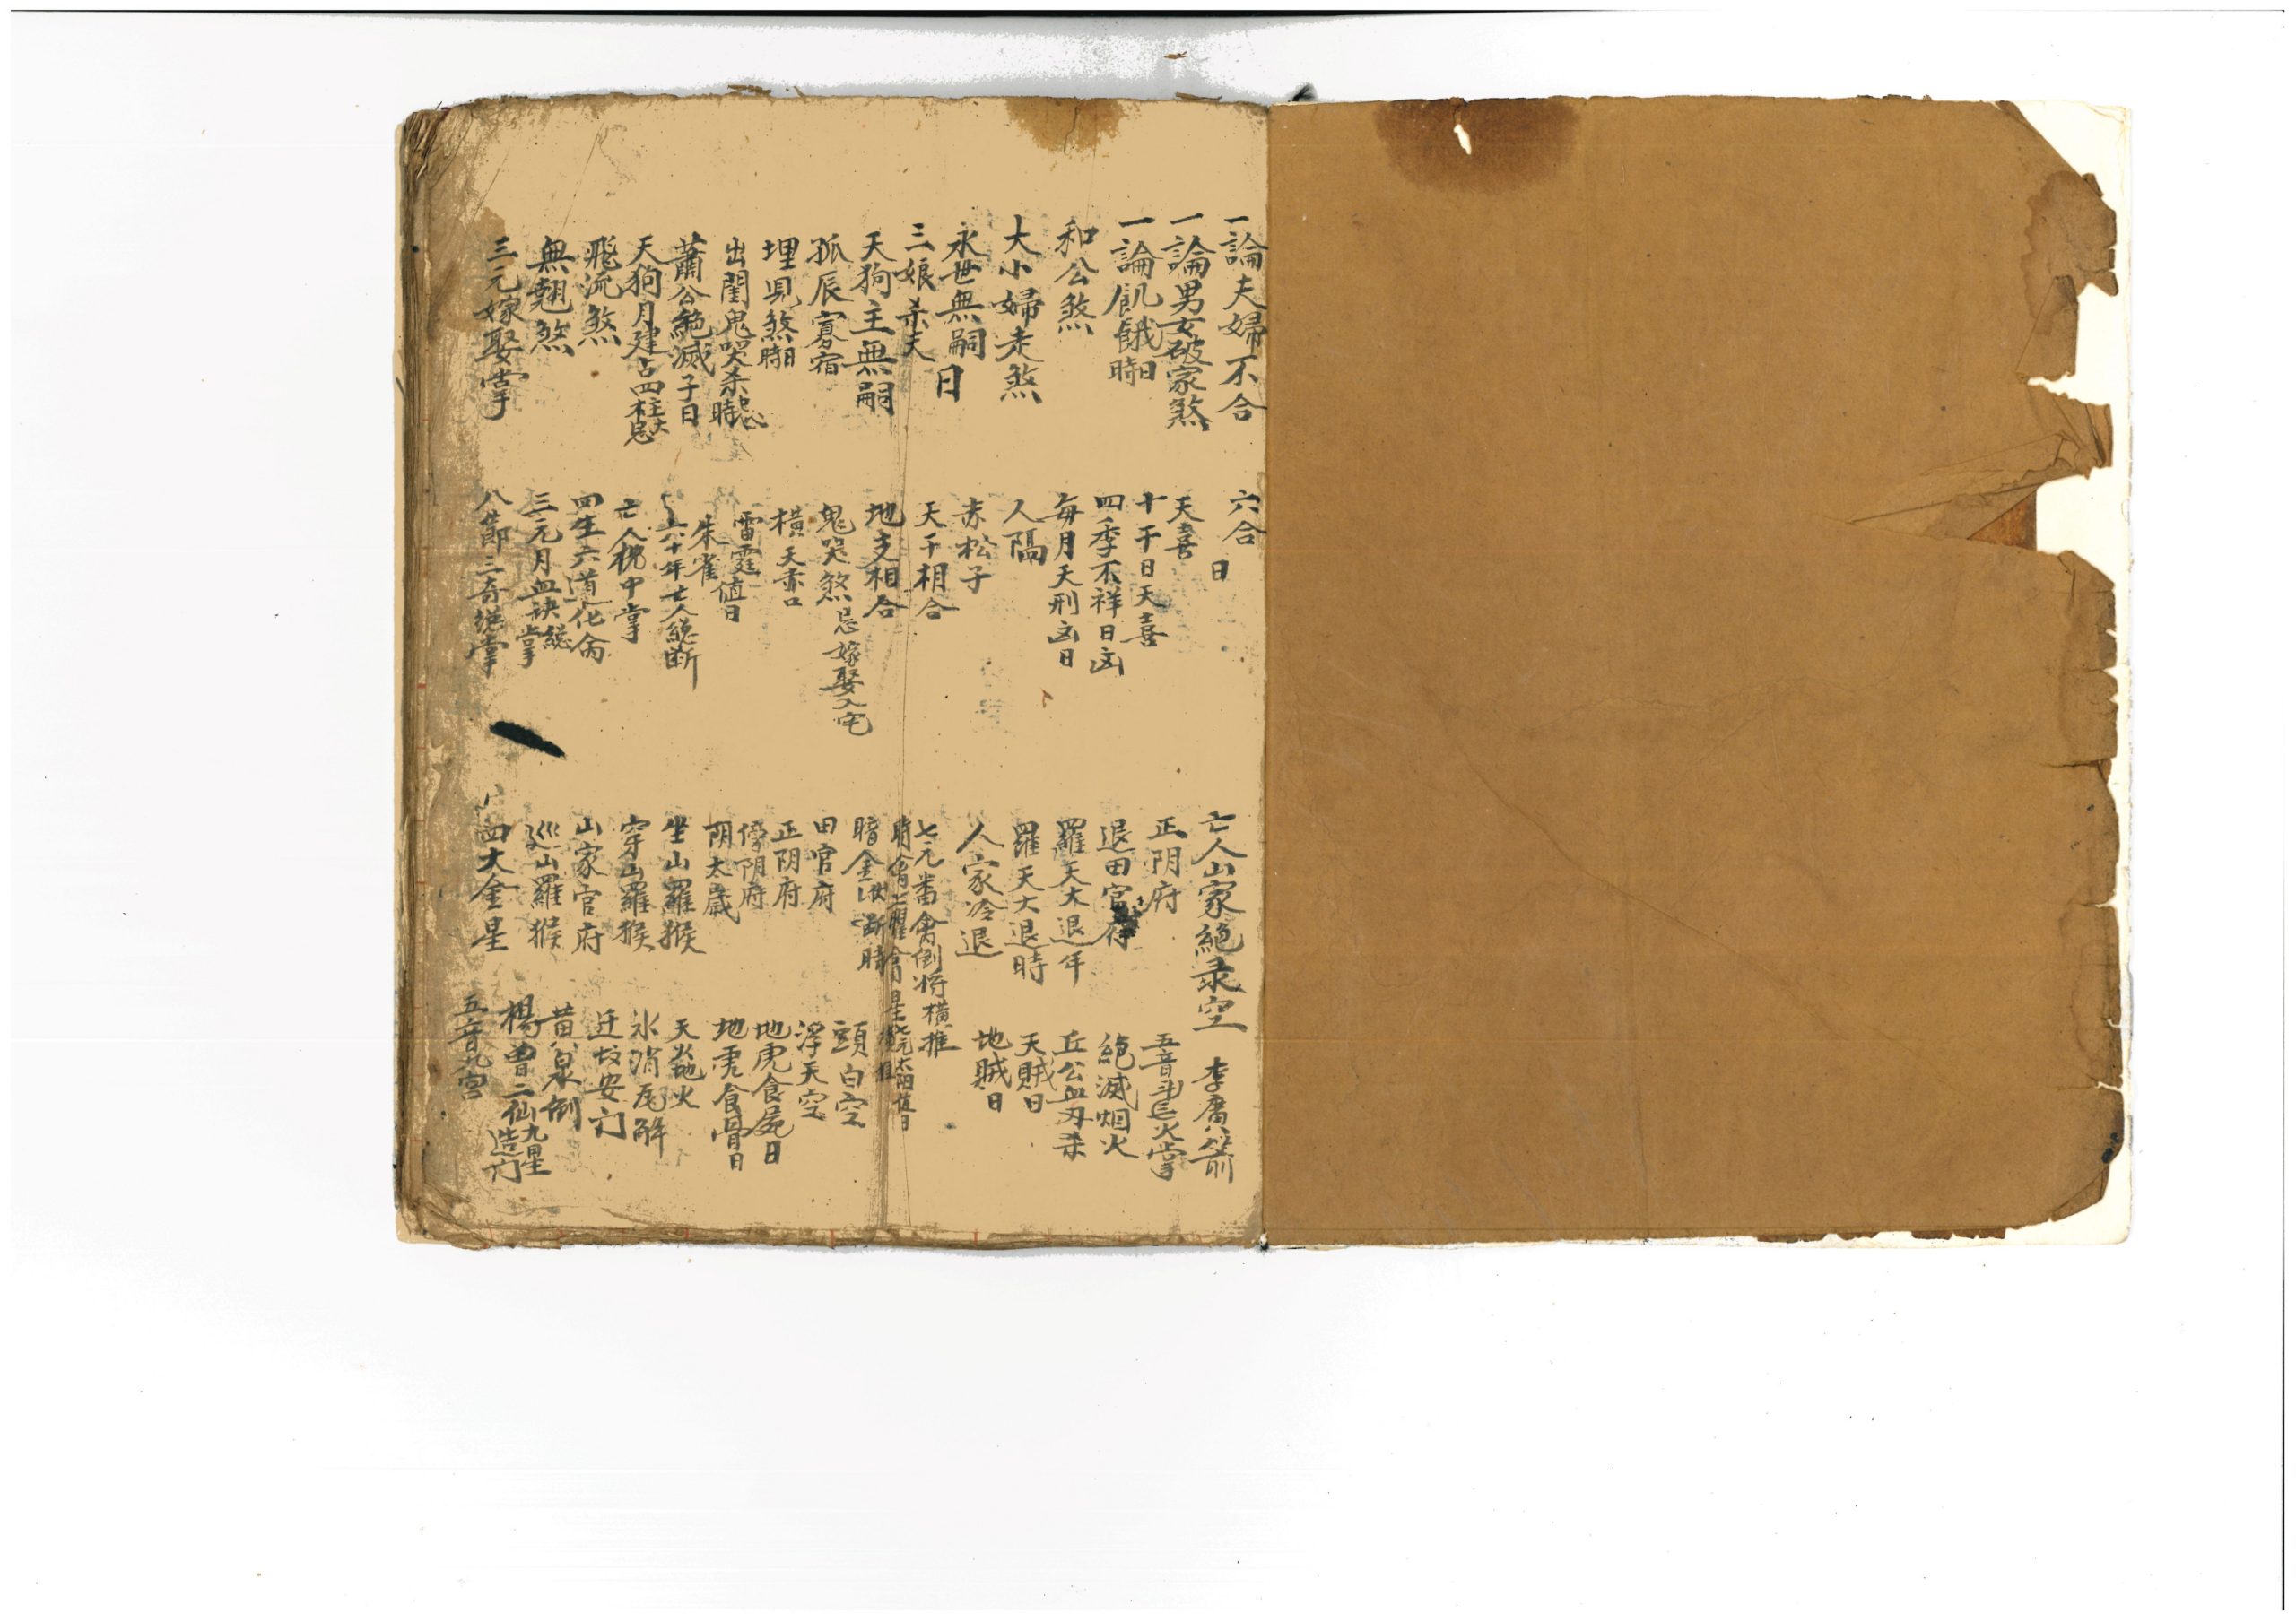 一論夫婦不合
一論男女破家煞
一論飢餓日時
和公煞
大小婦走煞
永世無嗣日
三娘杀夫
天狗主無嗣
孤辰寡宿
埋児煞日時
出閨鬼哭杀忌時
蕭公絶滅子日
天狗月建占四柱大忌
飛流煞
無翹煞
三元嫁娶掌
六合日
天喜
十干日天喜
四季不祥日凶
每月天刑凶日
人隔
赤松子
天干相合
地支相合
鬼哭煞忌嫁娶入宅
橫天赤口
雷霆值日
朱雀
六十年亡人總断
亡人 中掌
四生六道化
三元月血訣總掌
八節三奇總掌
亡人山家絕录空
正阴府
退田官符
羅天大退年
羅天大退時
人家冷退
七元番禽倒将橫推
暗金 断時
田官府
正阴府
傍阴府
阴太歲
坐山羅猴
穿山羅猴
山家官府
巡山羅猴
四大金星
李廣箭
五音斗 火掌
絕滅烟火
丘公血刃杀
天賊日
地賊日
頭白空
浮天空
地虎食屍日
地虎食骨日
天 地火
氷消尾解
迁坟安门
黃泉倒
楊曾二仙九星造门
五音九宮